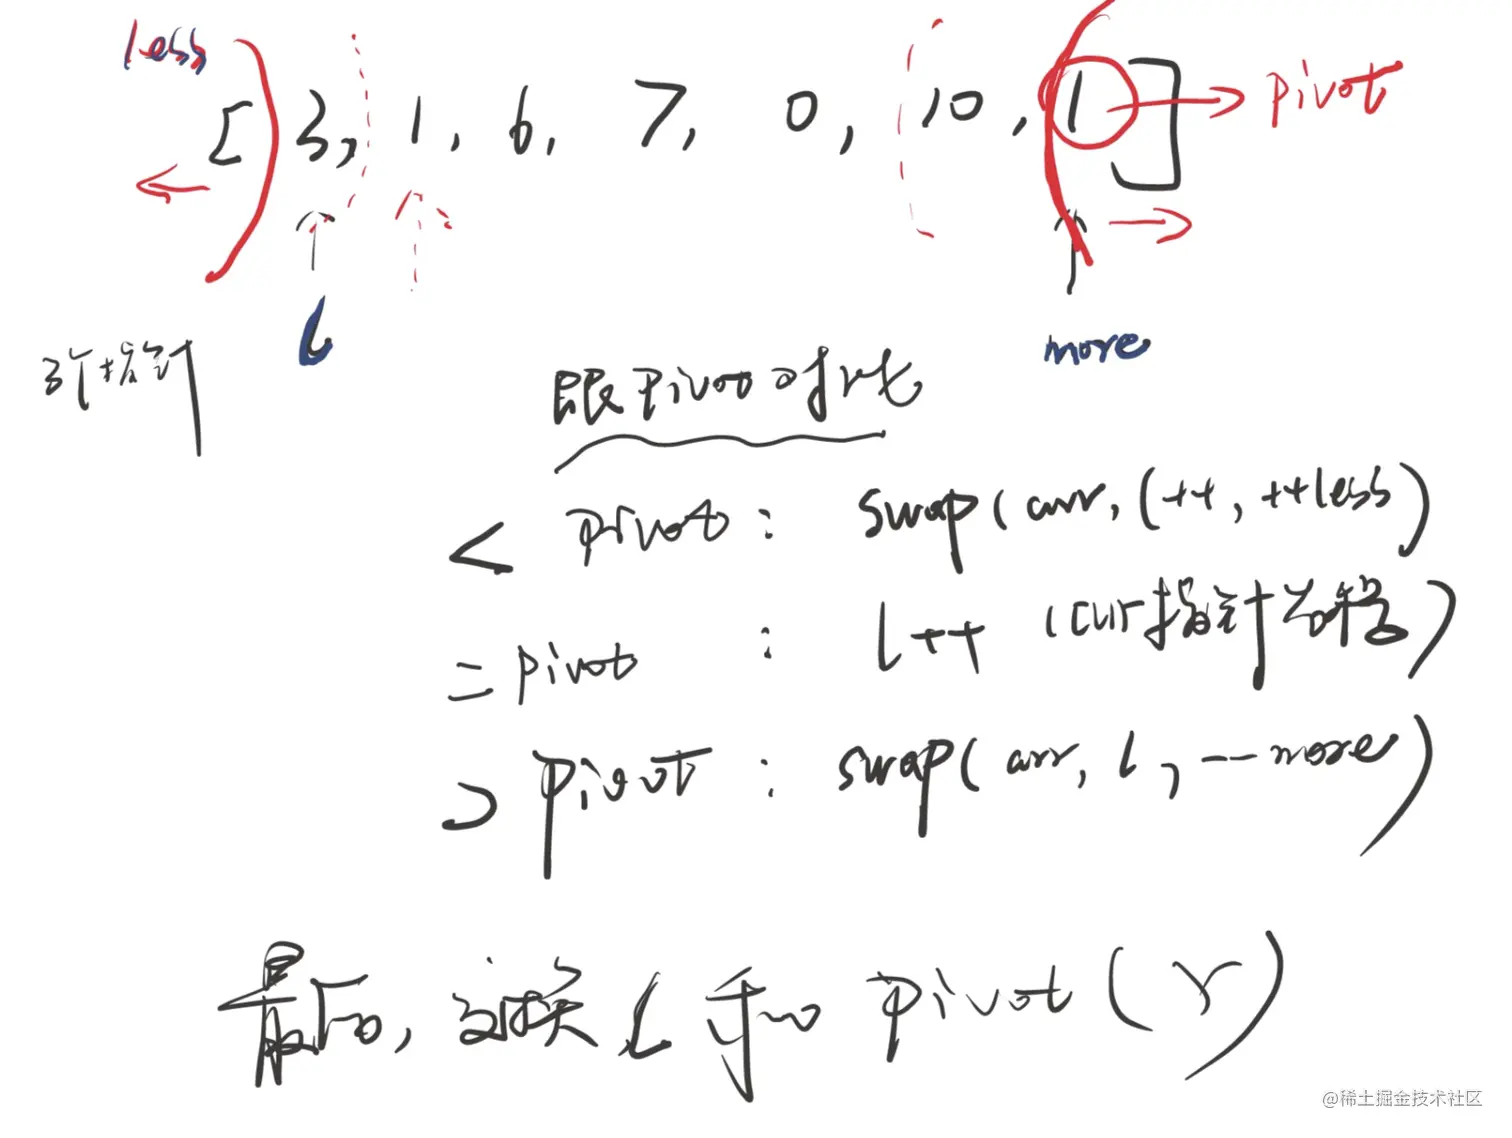 less
[ 3, 1, 6, 7, 0, 10, 1 ] → pivot
l more
3个指针
跟pivot对比
< pivot : swap(arr, l++, ++less)
= pivot : l++ (cur指针右移)
> pivot : swap(arr, l, --more)
最后, 交换 L 和 pivot(r)
@稀土掘金技术社区